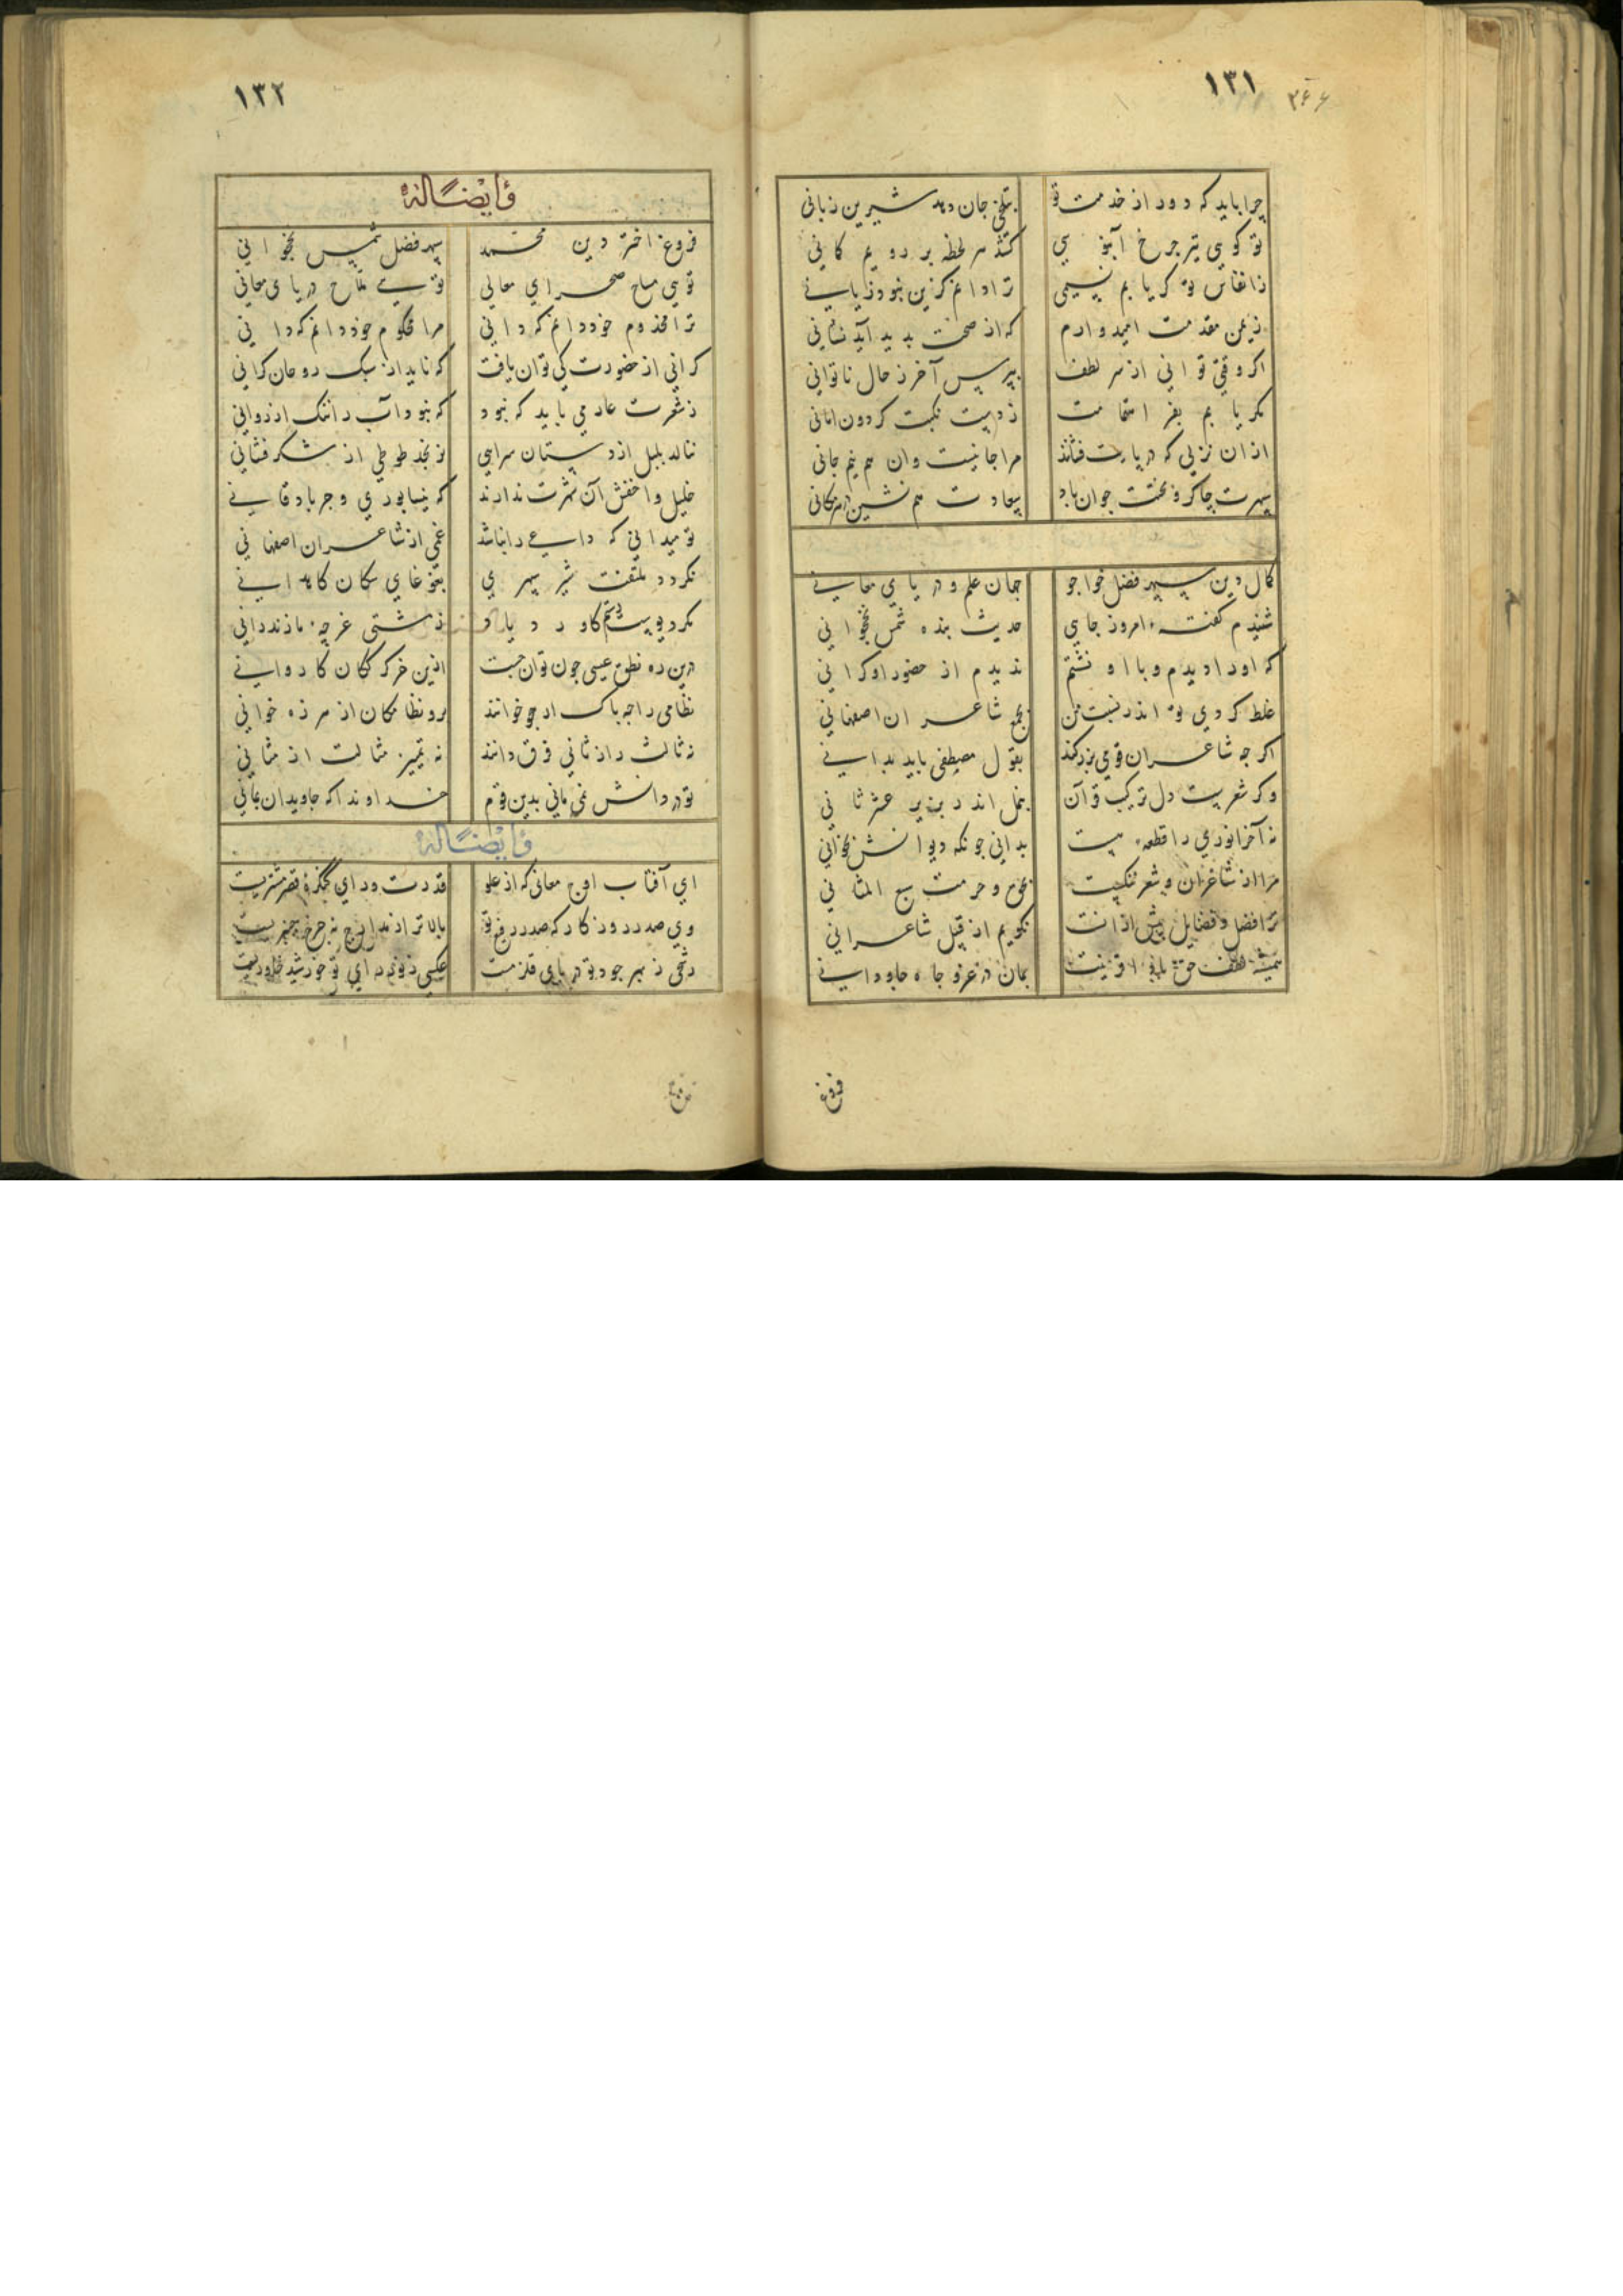 ۱۳۱
۲۶۶
چرا باید که دور از خدمت تو بتلخی جان دهد شیرین زبانی
تو کویی تیر چرخ آبنوسی کند هر لحظه بر رویم کمانی
ز انفاس تو کر یابم نسیمی ترا دانم کزین نبود زیانی
ز یمن مقدمت امیدوارم که از صحت پدید آید نشانی
اکر وقتی توانی از سر لطف بپرس آخر ز حال ناتوانی
مکر یابم بفر استمامت ز دست نکبت کردون امانی
از ان نزلی که در پایت فشاند مرا جانیست وان هم نیم جانی
سپهرت چاکر و بختت جوان باد سعادت هم نشین در هر مکانی
کمال دین سپهر فضل خواجو جهان علم و دریای معانی
شنیدم کفته امروز جایی حدیث بنده شمس نخجوانی
که او را دیدم و با او نشستم ندیدم از حضور او کرانی
غلط کردی تو اندر نسبت من بجمع شاعران اصفهانی
اکر چه شاعران قومی بزرکند بقول مصطفی باید بدانی
وکر شعریست دل ترکیب قرآن
نه آخر انوری را قطعه هست بدانی چونکه دیوانش بخوانی
مرا از شاعران و شعر ننکیست بحق و حرمت سبع المثانی
ترا فضل و فضایل بیش از آنست نکویم از قبیل شاعرانی
همیشه لطف حق بادا قرینت بمان در عز و جاه جاودانی
فروغ
۱۳۲
وَ أَیْضًا لَهُ
فروغ اختر دین محمد سپهر فضل شمس نخجوانی
تویی مساح صحرای معالی تویی ملاح دریای معانی
ترا مخدوم خود دانم که دانی مرا محکوم خود دانم که دانی
کرانی از حضورت کی توان یافت که ناید از سبک روحان کرانی
ز شعرت عار می باید که نبود که نبود آب را ننک از روانی
ننالد بلبل از دستان سرایی نرنجد طوطی از شکر فشانی
خلیل و اخفش آن شهرت ندارند که نیسابوری و جرباد قانی
تو میدانی که داعی را نباشد غمی از شاعران اصفهانی
نکردد ملتفت شیر سپهری بغوغای سکان کاهدانی
ز مشتی غرچه مازندرانی
درین ره نطق عیسی چون توان جست ازین خرکرکان کاروانی
نظامی را چه باک ار هجو خوانند برو نظامکان از سر زه خوانی
نه ثالث را ز ثانی فرق دانند نه تمییز مثالث از مثانی
تو در دانش نمی مانی بدین قوم خداوندا که جاویدان بمانی
وَ أَیْضًا لَهُ
ای آفتاب اوج معانی که از علو قدرت ورای کنکره قصر مشتریست
وی صدر روزکار که صدر رفیع تو بالاتر از مدارج نه چرخ چنبریست
رشحی ز بهر جود تو دریای قلزمست عکسی ز نور رای تو خورشید خاوریست